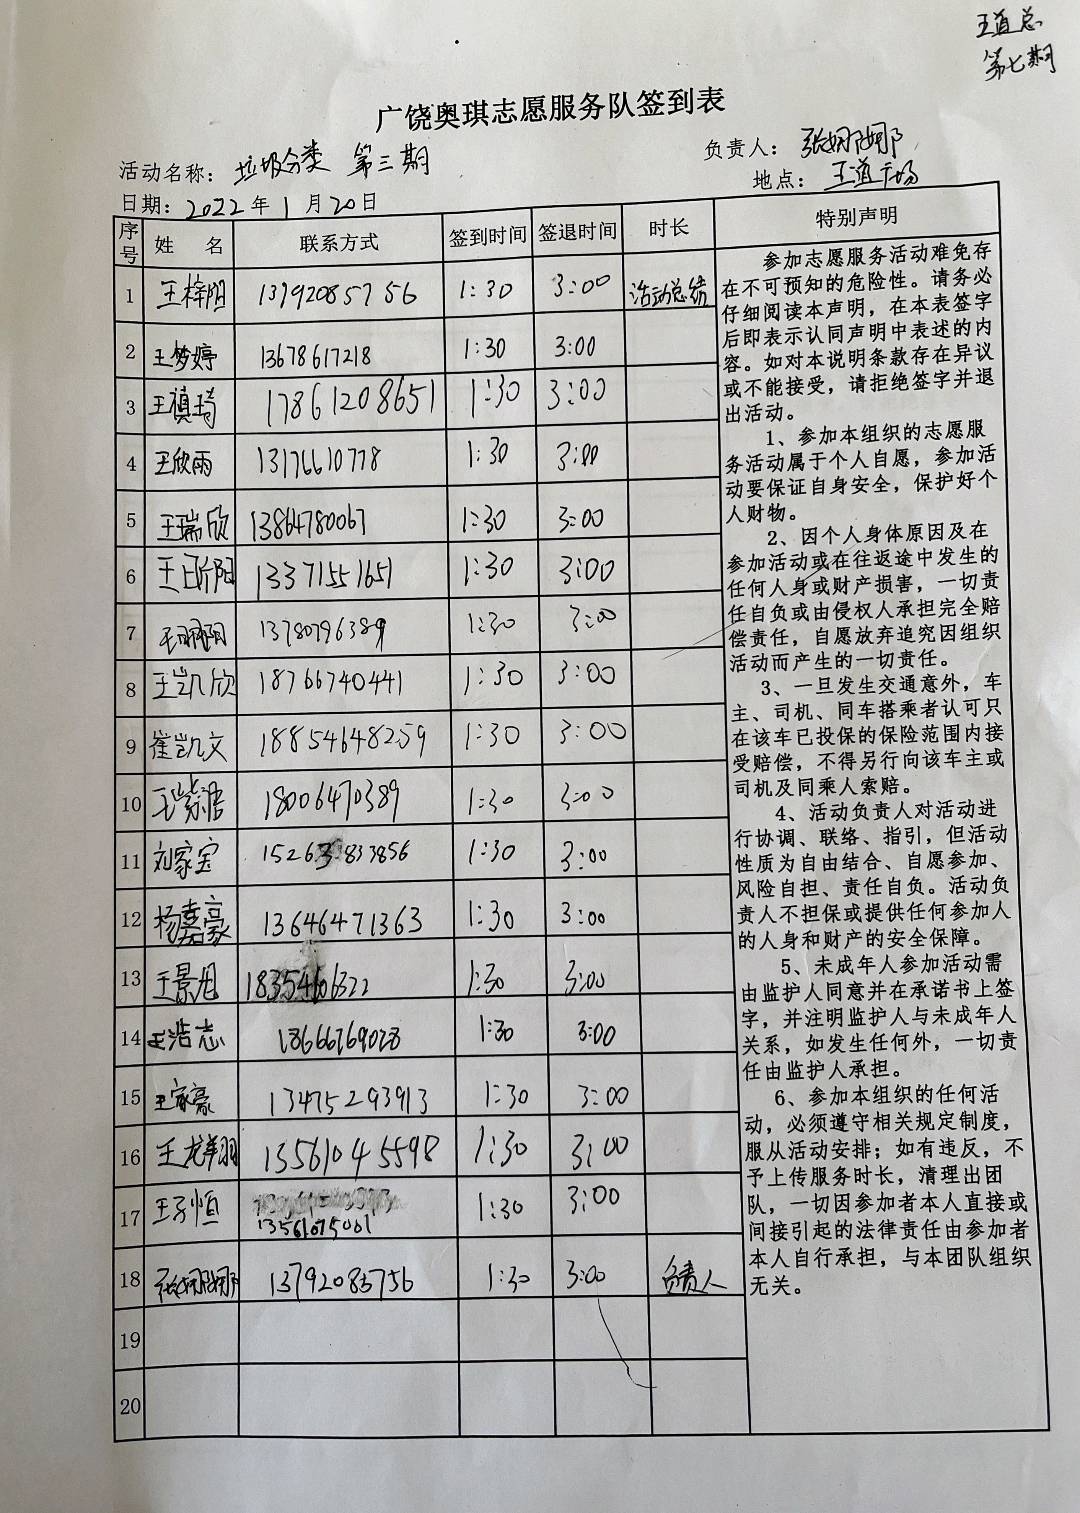 王道总
第七期
广饶奥琪志愿服务队签到表
活动名称：垃圾分类 第三期 负责人：张娜娜
日期：2022年1月20日 地点：王道广场
序号 姓 名 联系方式 签到时间 签退时间 时长 特别声明
1 王梓阳 13792085756 1:30 3:00 活动总结
2 王梦婷 13678617218 1:30 3:00
3 王禛琦 17861208651 1:30 3:00
4 王欣雨 13176610778 1:30 3:00
5 王瑞欣 13864780067 1:30 3:00
6 王昕阳 13371551651 1:30 3:00
7 13780796389 1:30 3:00
8 王凯欣 18766740441 1:30 3:00
9 崔凯文 18854648259 1:30 3:00
10 王紫浩 18006470389 1:30 3:00
11 刘家宝 15263833856 1:30 3:00
12 杨嘉豪 13646471363 1:30 3:00
13 王景旭 18354606322 1:30 3:00
14 王浩志 18666769028 1:30 3:00
15 王家豪 13475293913 1:30 3:00
16 王龙翔 13561045598 1:30 3:00
17 王子恒 13561075001 1:30 3:00
18 张娜娜 13792085756 1:30 3:00 负责人
19
20
参加志愿服务活动难免存
在不可预知的危险性。请务必
仔细阅读本声明，在本表签字
后即表示认同声明中表述的内
容。如对本说明条款存在异议
或不能接受，请拒绝签字并退
出活动。
1、参加本组织的志愿服
务活动属于个人自愿，参加活
动要保证自身安全，保护好个
人财物。
2、因个人身体原因及在
参加活动或在往返途中发生的
任何人身或财产损害，一切责
任自负或由侵权人承担完全赔
偿责任，自愿放弃追究因组织
活动而产生的一切责任。
3、一旦发生交通意外，车
主、司机、同车搭乘者认可只
在该车已投保的保险范围内接
受赔偿，不得另行向该车主或
司机及同乘人索赔。
4、活动负责人对活动进
行协调、联络、指引，但活动
性质为自由结合、自愿参加、
风险自担、责任自负。活动负
责人不担保或提供任何参加人
的人身和财产的安全保障。
5、未成年人参加活动需
由监护人同意并在承诺书上签
字，并注明监护人与未成年人
关系，如发生任何外，一切责
任由监护人承担。
6、参加本组织的任何活
动，必须遵守相关规定制度，
服从活动安排；如有违反，不
予上传服务时长，清理出团
队，一切因参加者本人直接或
间接引起的法律责任由参加者
本人自行承担，与本团队组织
无关。